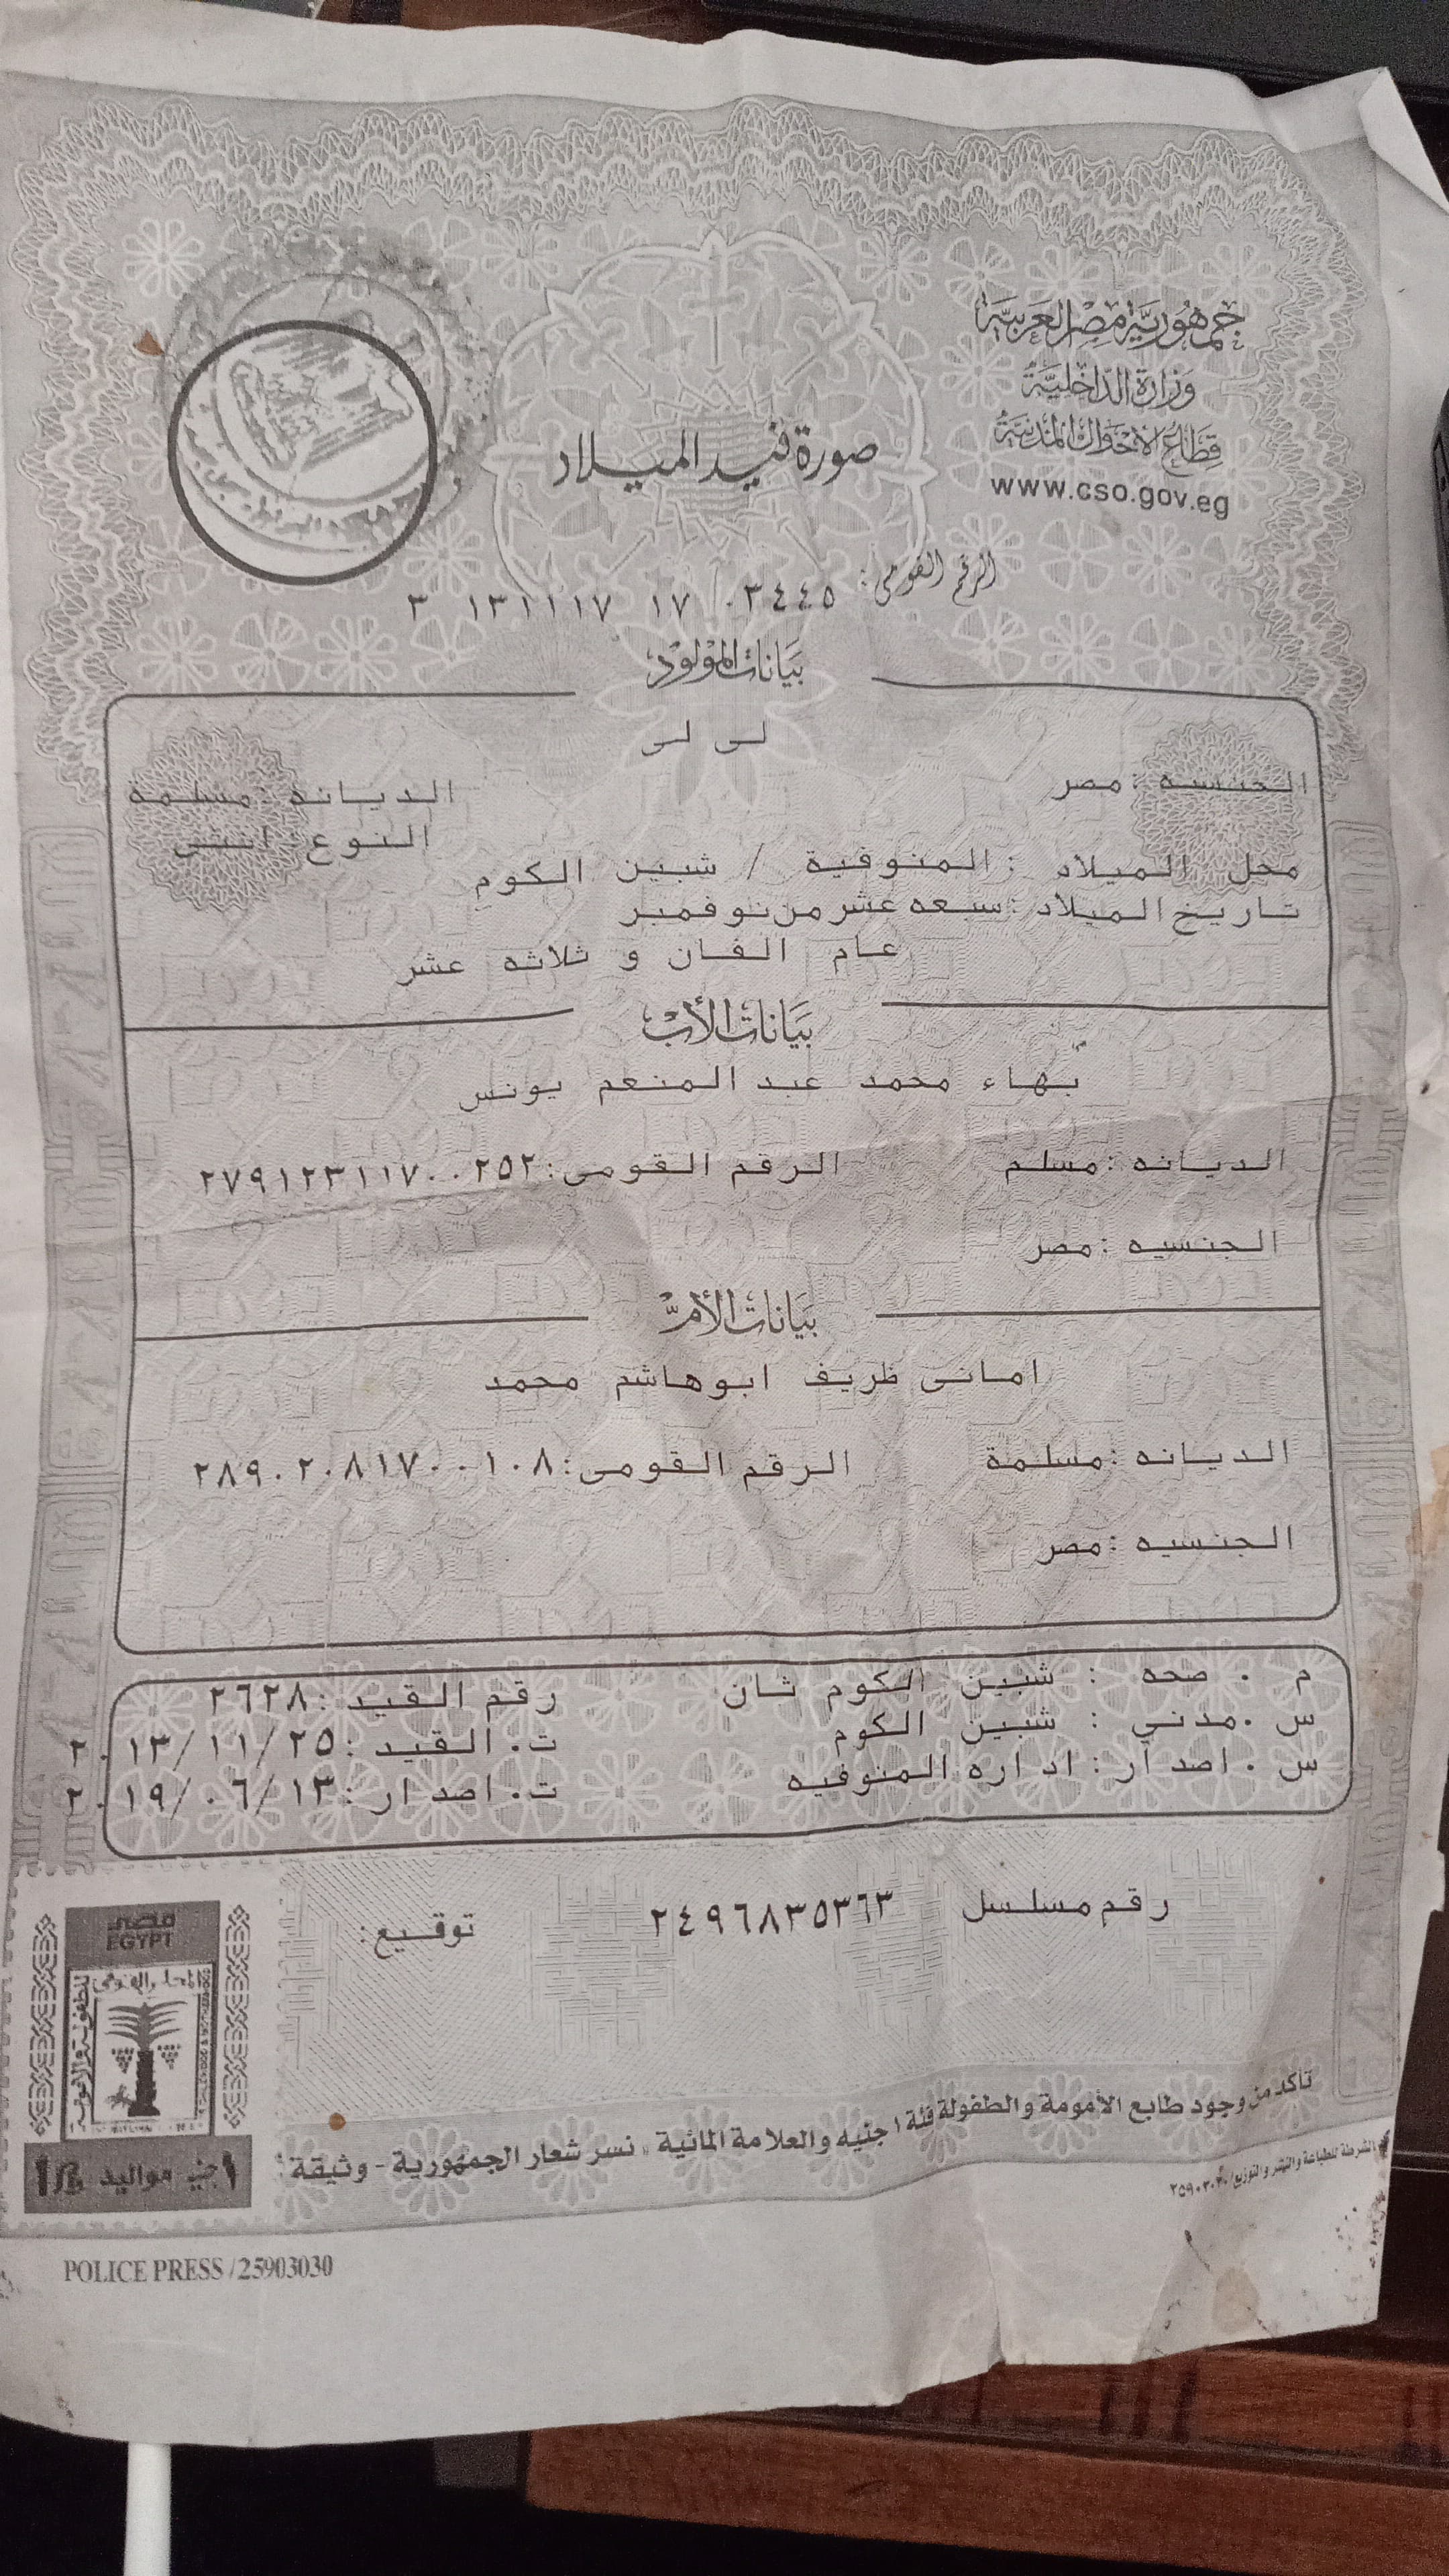 جمهورية مصر العربية
وزارة الداخلية
قطاع الأحوال المدنية
www.cso.gov.eg
صورة قيد الميلاد
الرقم القومى: ٣ ١٣١١١٧ ١٧ ٠٣٤٤٥
بيانات المولود
لى لى
الجنسيه : مصر الديانه : مسلمة
النوع : انثى
محل الميلاد : المنوفية / شبين الكوم
تاريخ الميلاد : سبعه عشر من نوفمبر
عام الفان و ثلاثه عشر
بيانات الأب
بهاء محمد عبد المنعم يونس
الديانه : مسلم الرقم القومى : ٢٧٩١٢٣١١٧٠٠٢٥٢
الجنسيه : مصر
بيانات الأم
امانى ظريف ابوهاشم محمد
الديانه : مسلمة الرقم القومى : ٢٨٩٠٢٠٨١٧٠٠١٠٨
الجنسيه : مصر
م . صحه : شبين الكوم ثان رقم القيد : ٢٦٢٨
س . مدني : شبين الكوم ت . القيد : ٢٠١٣/١١/٢٥
س . اصدار : اداره المنوفيه ت . اصدار : ٢٠١٩/٠٦/١٣
رقم مسلسل ٢٤٩٦٨٣٥٣٦٣ توقيع :
مصر
EGYPT
المجلس القومى
للطفولة والأمومة
١ جنيه مواليد
تأكد من وجود طابع الأمومة والطفولة فئة ١ جنيه والعلامة المائية " نسر شعار الجمهورية - وثيقة "
الشرطة للطباعة والنشر والتوزيع/٢٥٩٠٣٠٣٠
POLICE PRESS /25903030